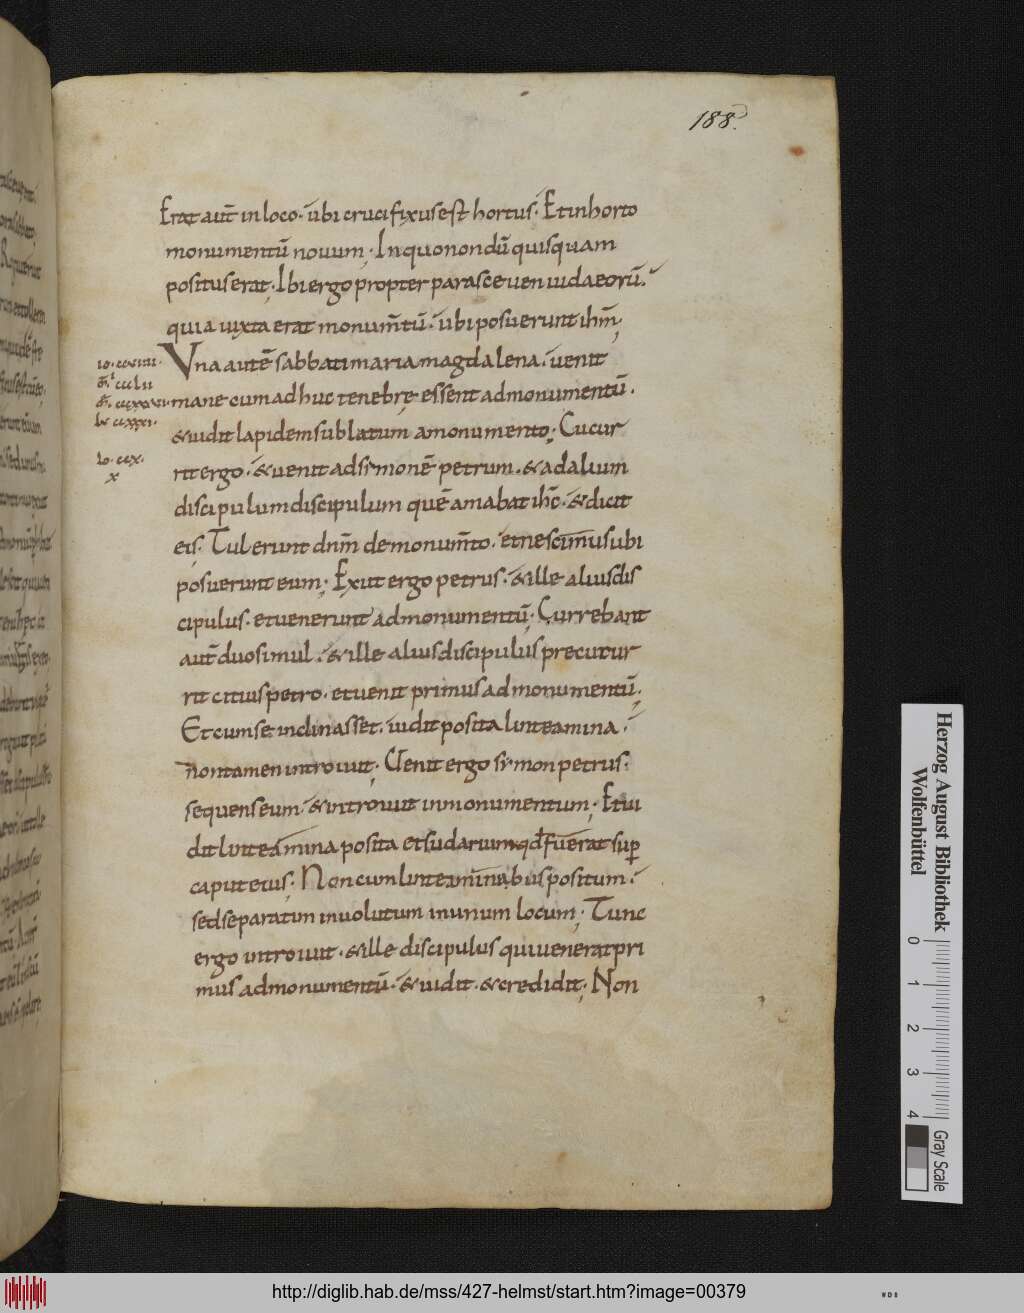 188.
Erat aut̄ in loco. ubi crucifixus est hortus. Et in horto
monumentū novum. In quo nondū quisquam
positus erat; Ibi ergo propter parasceuen iudaeorū.
quia iuxta erat monum̄tū. ubi posuerunt ihm̄;
Una autē sabbati maria magdalena. uenit
mane cum adhuc tenebrę essent ad monumentū.
& uidit lapidem sublatum a monumento; Cucur
rit ergo. & uenit ad symonē petrum. & ad alium
discipulum discipulum quē amabat ihc̄. & dicit
eis; Tulerunt dnm̄ de monum̄to. et nescimus ubi
posuerunt eum; Exiit ergo petrus. & ille alius dis
cipulus. et uenerunt ad monumentū; Currebant
aut̄ duo simul. & ille alius discipulus precucur
rit citius petro. et uenit primus ad monumentū;
Et cum se inclinasset. uidit posita linteamina.
non tamen introiuit; Uenit ergo symon petrus.
sequens eum. & introiuit in monumentum; Et ui
dit linteamina posita et sudarium qđ fuerat sup̄
caput eius; Non cum linteaminabus positum.
sed separatim inuolutum in unum locum; Tunc
ergo introiuit. & ille discipulus qui uenerat pri
mus ad monumentū. & uidit. & credidit; Non
Herzog August Bibliothek
Wolfenbüttel
0 1 2 3 4
Gray Scale
http://diglib.hab.de/mss/427-helmst/start.htm?image=00379